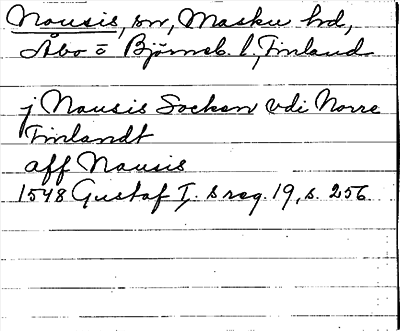 Nousis, sn, Masku hd,
Åbo o Björneb. l, Finland
j Nousis Socken vdi Norre
Finlandt
aff Nousis
1548 Gustaf I. s reg. 19, s. 256